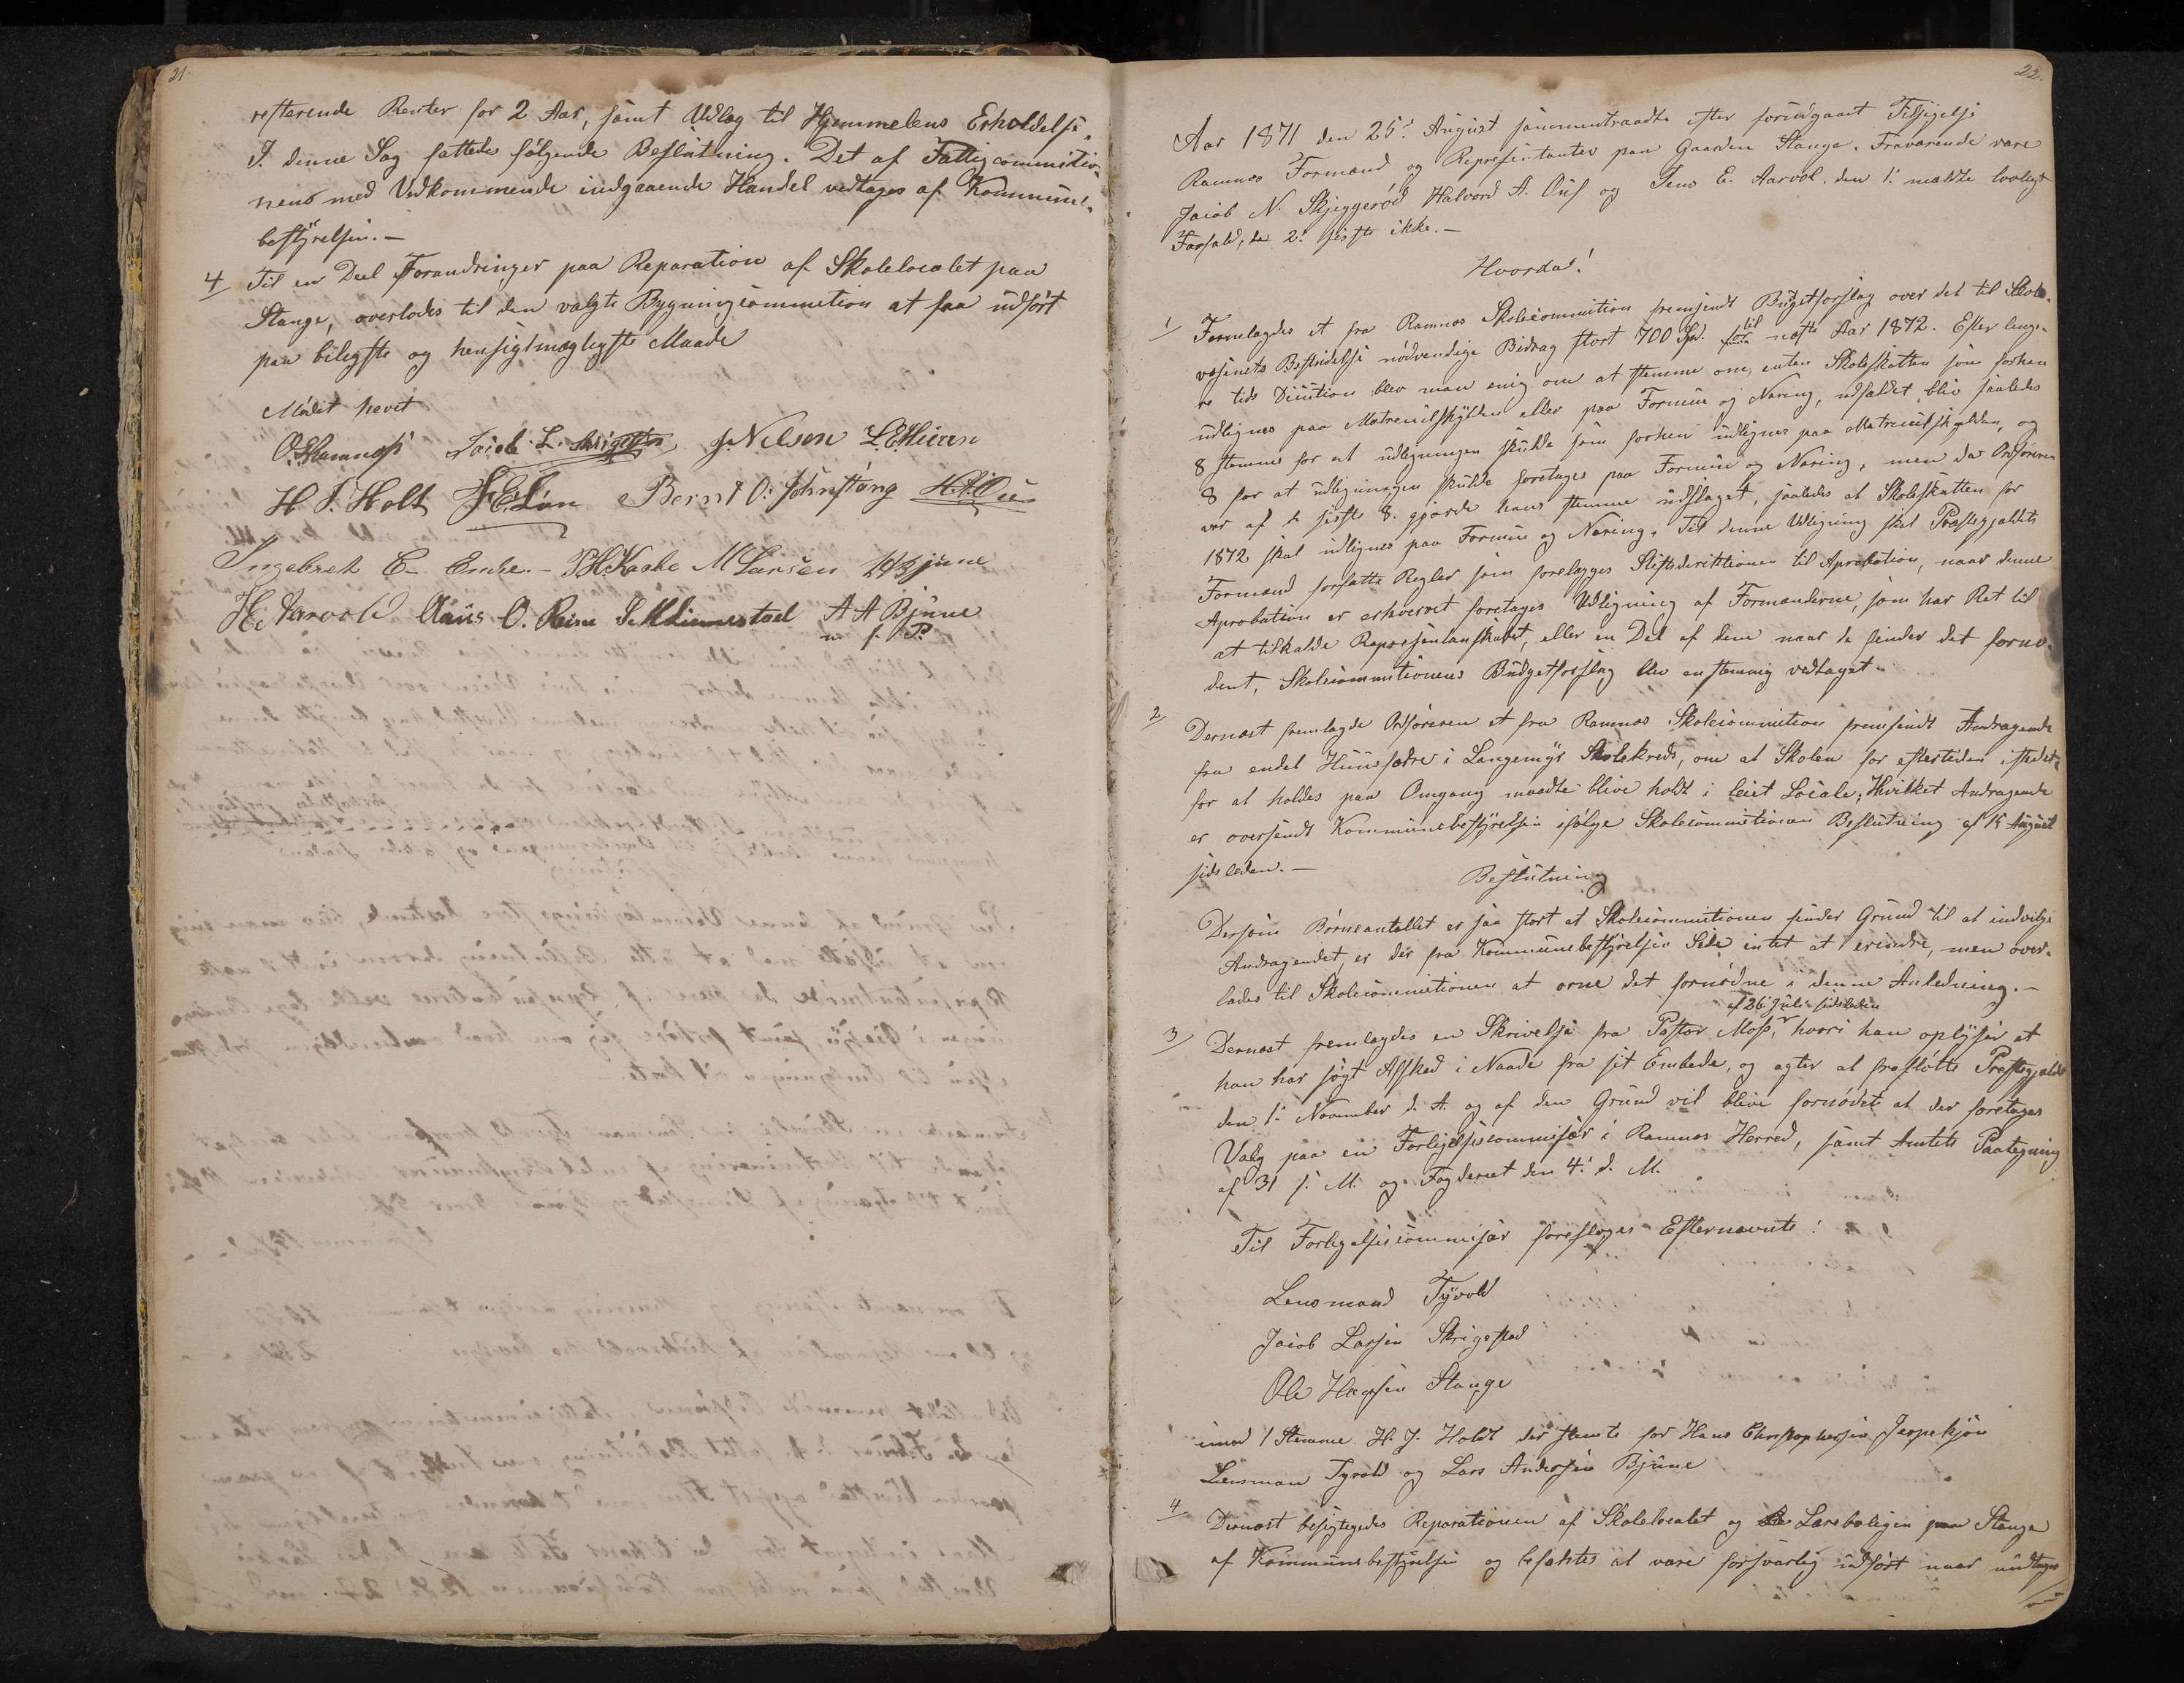 21.
resterende Renter for 2 Aar, samt Udlæg til Hjemmelens Erholdelse.
I denne Sag fattedes følgende Beslutning. Det af Fattigcommitio-
nens med Vedkommende indgaaende Handel vedtages af Kommune-
bestyrelsen.-
4 Til en Deel Forandringer paa Reparation af Skolelocalet paa
Stange, overlodes til den valgte Bygningscommition at faa udført
paa biligste og hensigtmæsigste Maade
Mødet hevet
O. Ramnæs Jacob L. J. Nilsen
H. J. Holt Bernt O.
Ingebret C. Endre.- P.H. Kaabe M Larsen
H. Aarvold Claus O. Reine A A Bjune
m f. P.
22.
Aar 1871 den 25d August sammentraadte efter foridgaaet Tilsigelse
Ramnæs Formænd og Repræsentanter paa Gaarden Stange. Fraværende vare
Jacob N. Skjeggerød Halvord A. Ous og Jens E. Aarvol. den 1. meldte lovligt
Forfald, de 2. sidste ikke.-
Hvorda!
1/ Fremlagdes et fra Ramnæs Skolecommition fremsendt Budgetforslag over det til Skole-
væsenets Bestridelse nødvendige Bidrag stort 700 Spd. til næste Aar 1872. Efter længe-
re tids Dicution blev man enig om at stemme om, enten Skoleskatten som forhen
udlignes paa Matreculskylden eller paa Formue og Næring, udfaldet blev saaledes
8 stemme for at udligningen skulde som forhen udlignes paa Matreculskylden, og
8 for at udligningen skulde foretages paa Formue og Næring, men da Ordføreren
var af de sidste 8. gjorde hans stemme udslaget, saaledes at Skoleskatten for
1872 skal udlignes paa Formue og Næring. Til denne Udligning skal Præstegjeldets
Formænd forfatte Regler som forelægges Stiftsdirektionen til Aprobation, naar denne
Aprobation er erhvervet foretages Udligning af Formænderne, som har Ret til
at tilkalde Repræsentanskabet, eller en Del af dem naar de finder det fornø-
dent, Skolecommitionens Budgetforslag blev enstemmig vedtaget.
2/ Dernæst fremlagde Ordføreren et fra Ramnæs Skolecommition fremsendt Andragende
fra endel Huusfædre i Langemyr Skolekreds, om at Skolen for eftertiden istedet-
for at holdes paa Omgang maatte blive holdt i leiet Locale; Hvilket Andragende
er oversendt Kommunebestyrelsen ifølge Skolecommitionens Beslutning af 15 August
sidsleden.-
Beslutning
Dersom Børneantallet er saa stort at Skolecommitionen finder Grund til at indvilge
Andragendet, er der fra Kommunebestyrelsen Side intet at erindre, men over-
lades til Skolecommitionen at orne det fornødne i denne Anledning.-
af 26 Juli sidsleden
3/ Dernæst fremlagdes en Skrivelse fra Pastor Moss, hvori han oplyser at
han har søgt Afsked i Naade fra sit Embede, og agter at fraflotte Præstegjeldet
den 1. November d. A. og af den Grund vil blive fornødet at der foretages
Valg paa en Forligelsescommisær i Ramnæs Herred, samt Amtets Paategning
af 31 f. M. og Fogderiet den 4. d. M.
Til Forligelsescommisær foreslages Efternævnte:
Lensmand Tyvold
Jacob Larsen Skrigestad
Ole Hansen Stange
imod 1 Stemme H. J. Holdt der stemte for Hans Christophersen Jerpekjøn
Lensman Tyvold og Lars Andersen Bjune
4/ Dernæst besigtegedes Reparationen af Skolelocalet og Læreboligen paa Stange
af Kommunebestyrelsen og befantes at være forsvarlig udført naar undtages